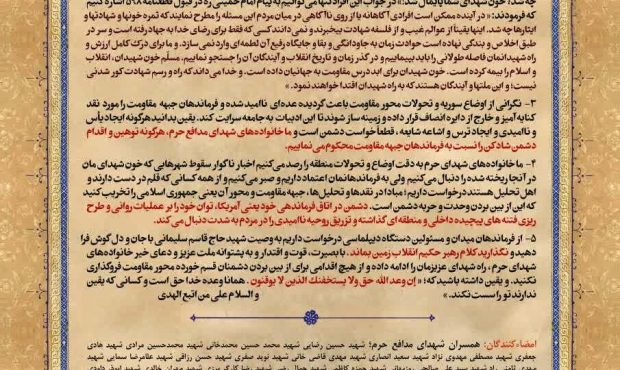 چه شد؟ خون شهدای شما پایمال شد.» در جواب این افراد می توانیم به پیام امام خمینی ره در قبول قطعنامه ۵۹۸ اشاره کنیم
که فرمودند: «در آینده ممکن است افرادی آگاهانه یا از روی ناآگاهی در میان مردم این مسئله را مطرح نمایند که ثمره خونها و شهادتها و
ایثارها چه شد. اینها یقیناً از عوالم غیب و از فلسفه شهادت بیخبرند و نمی دانند کسی که فقط برای رضای خدا به جهاد رفته است و سر در
طبق اخلاص و بندگی نهاده است حوادث زمان به جاودانگی و بقا و جایگاه رفیع آن لطمه ای وارد نمی سازد. و ما برای درک کامل ارزش و
راه شهیدانمان فاصله طولانی را باید بپیماییم و در گذر زمان و تاریخ انقلاب و آیندگان آن را جستجو نماییم. مسلّم خون شهیدان، انقلاب
و اسلام را بیمه کرده است. خون شهیدان برای ابد درس مقاومت به جهانیان داده است. و خدا می داند که راه و رسم شهادت کور شدنی
نیست؛ و این ملتها و آیندگان هستند که به راه شهیدان اقتدا خواهند نمود.»
۳- نگرانی از اوضاع سوریه و تحولات محور مقاومت باعث گردیده عده ای ناامید شده و فرماندهان جبهه مقاومت را مورد نقد
کنایه آمیز و خارج از دایره انصاف قرار داده و زمینه ساز شوند تا این ادبیات به جامعه سرایت کند. یقین بدانید هرگونه ایجاد یأس
و ناامیدی و ایجاد ترس و اشاعه شایعه، قطعاً خواست دشمن است و ما خانواده های شهدای مدافع حرم، هرگونه توهین و اقدام
دشمن شادکن را نسبت به فرماندهان جبهه مقاومت محکوم می نماییم.
۴- ما خانواده های شهدای حرم به دقت اوضاع و تحولات منطقه را رصد می کنیم اخبار ناگوار سقوط شهرهایی که خون شهدای مان
در آنجا ریخته شده را دنبال می کنیم ولی به فرماندهانمان اعتماد داریم و صبر می کنیم و از همه کسانی که قلم در دست دارند و
اهل تحلیل هستند درخواست داریم؛ مبادا در نقدها و تحلیل ها، جبهه مقاومت و محور آن یعنی جمهوری اسلامی را تخریب کنید
که این از بین بردن وحدت و حربه دشمن است. دشمن در اتاق فرماندهی خود یعنی آمریکا، توان خود را بر عملیات روانی و طرح
ریزی فتنه های پیچیده داخلی و منطقه ای گذاشته و تزریق روحیه ناامیدی را در مردم به شدت دنبال می کند.
۵- از فرماندهان میدان و مسئولین دستگاه دیپلماسی درخواست داریم به وصیت شهید حاج قاسم سلیمانی با جان و دل گوش فرا
دهید و نگذارید کلام رهبر حکیم انقلاب زمین بماند. با بصیرت، قوت و اقتدار و به پشتوانه ملت عزیز و دعای خیر خانواده های
شهدای حرم، راه شهدای عزیزمان را ادامه داده و از هیچ اقدامی برای از بین بردن دشمنان قسم خورده محور مقاومت فروگذاری
نکنید. و یقین داشته باشید که؛ «إن وعد الله حق ولا یستخفنک الذین لا یوقنون. همانا وعده خدا حق است و کسانی که یقین
ندارند تو را سست نکنند.» والسلام علی من اتبع الهدی
امضاءکنندگان: همسران شهدای مدافع حرم؛ شهید حسین رضایی شهید محمد حسین محمدخانی شهید محمدحسین مرادی شهید هادی
جعفری شهید مصطفی مهدوی نژاد شهید سعید انصاری شهید مهدی قاضی خانی شهید نوید صفری شهید حسن رزاقی شهید غلامرضا سمایی شهید